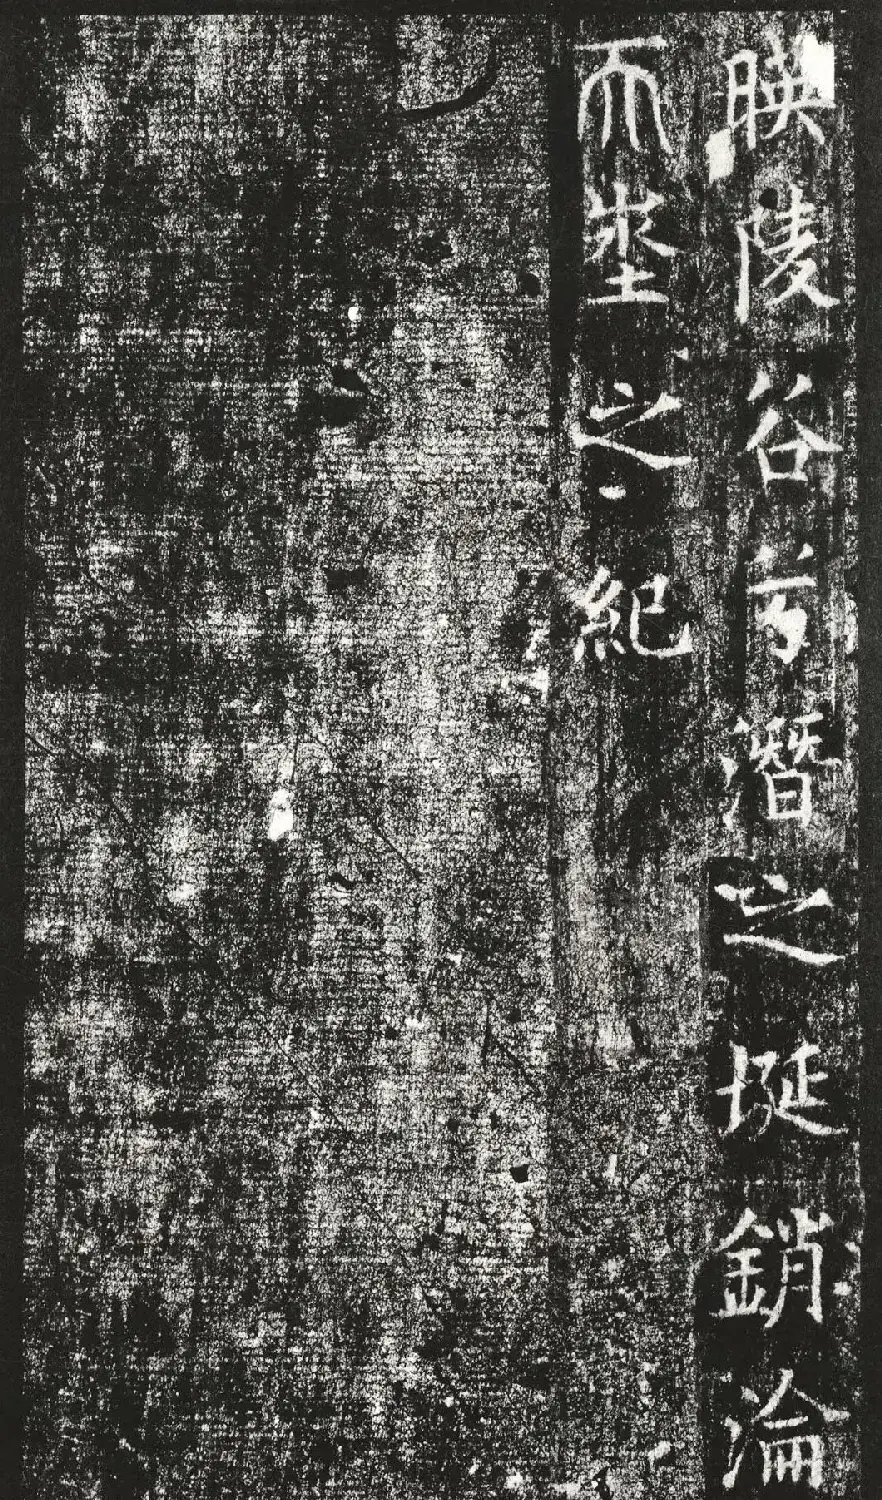 暎陵谷兮潛之埏銷淪
𠀑埊之紀